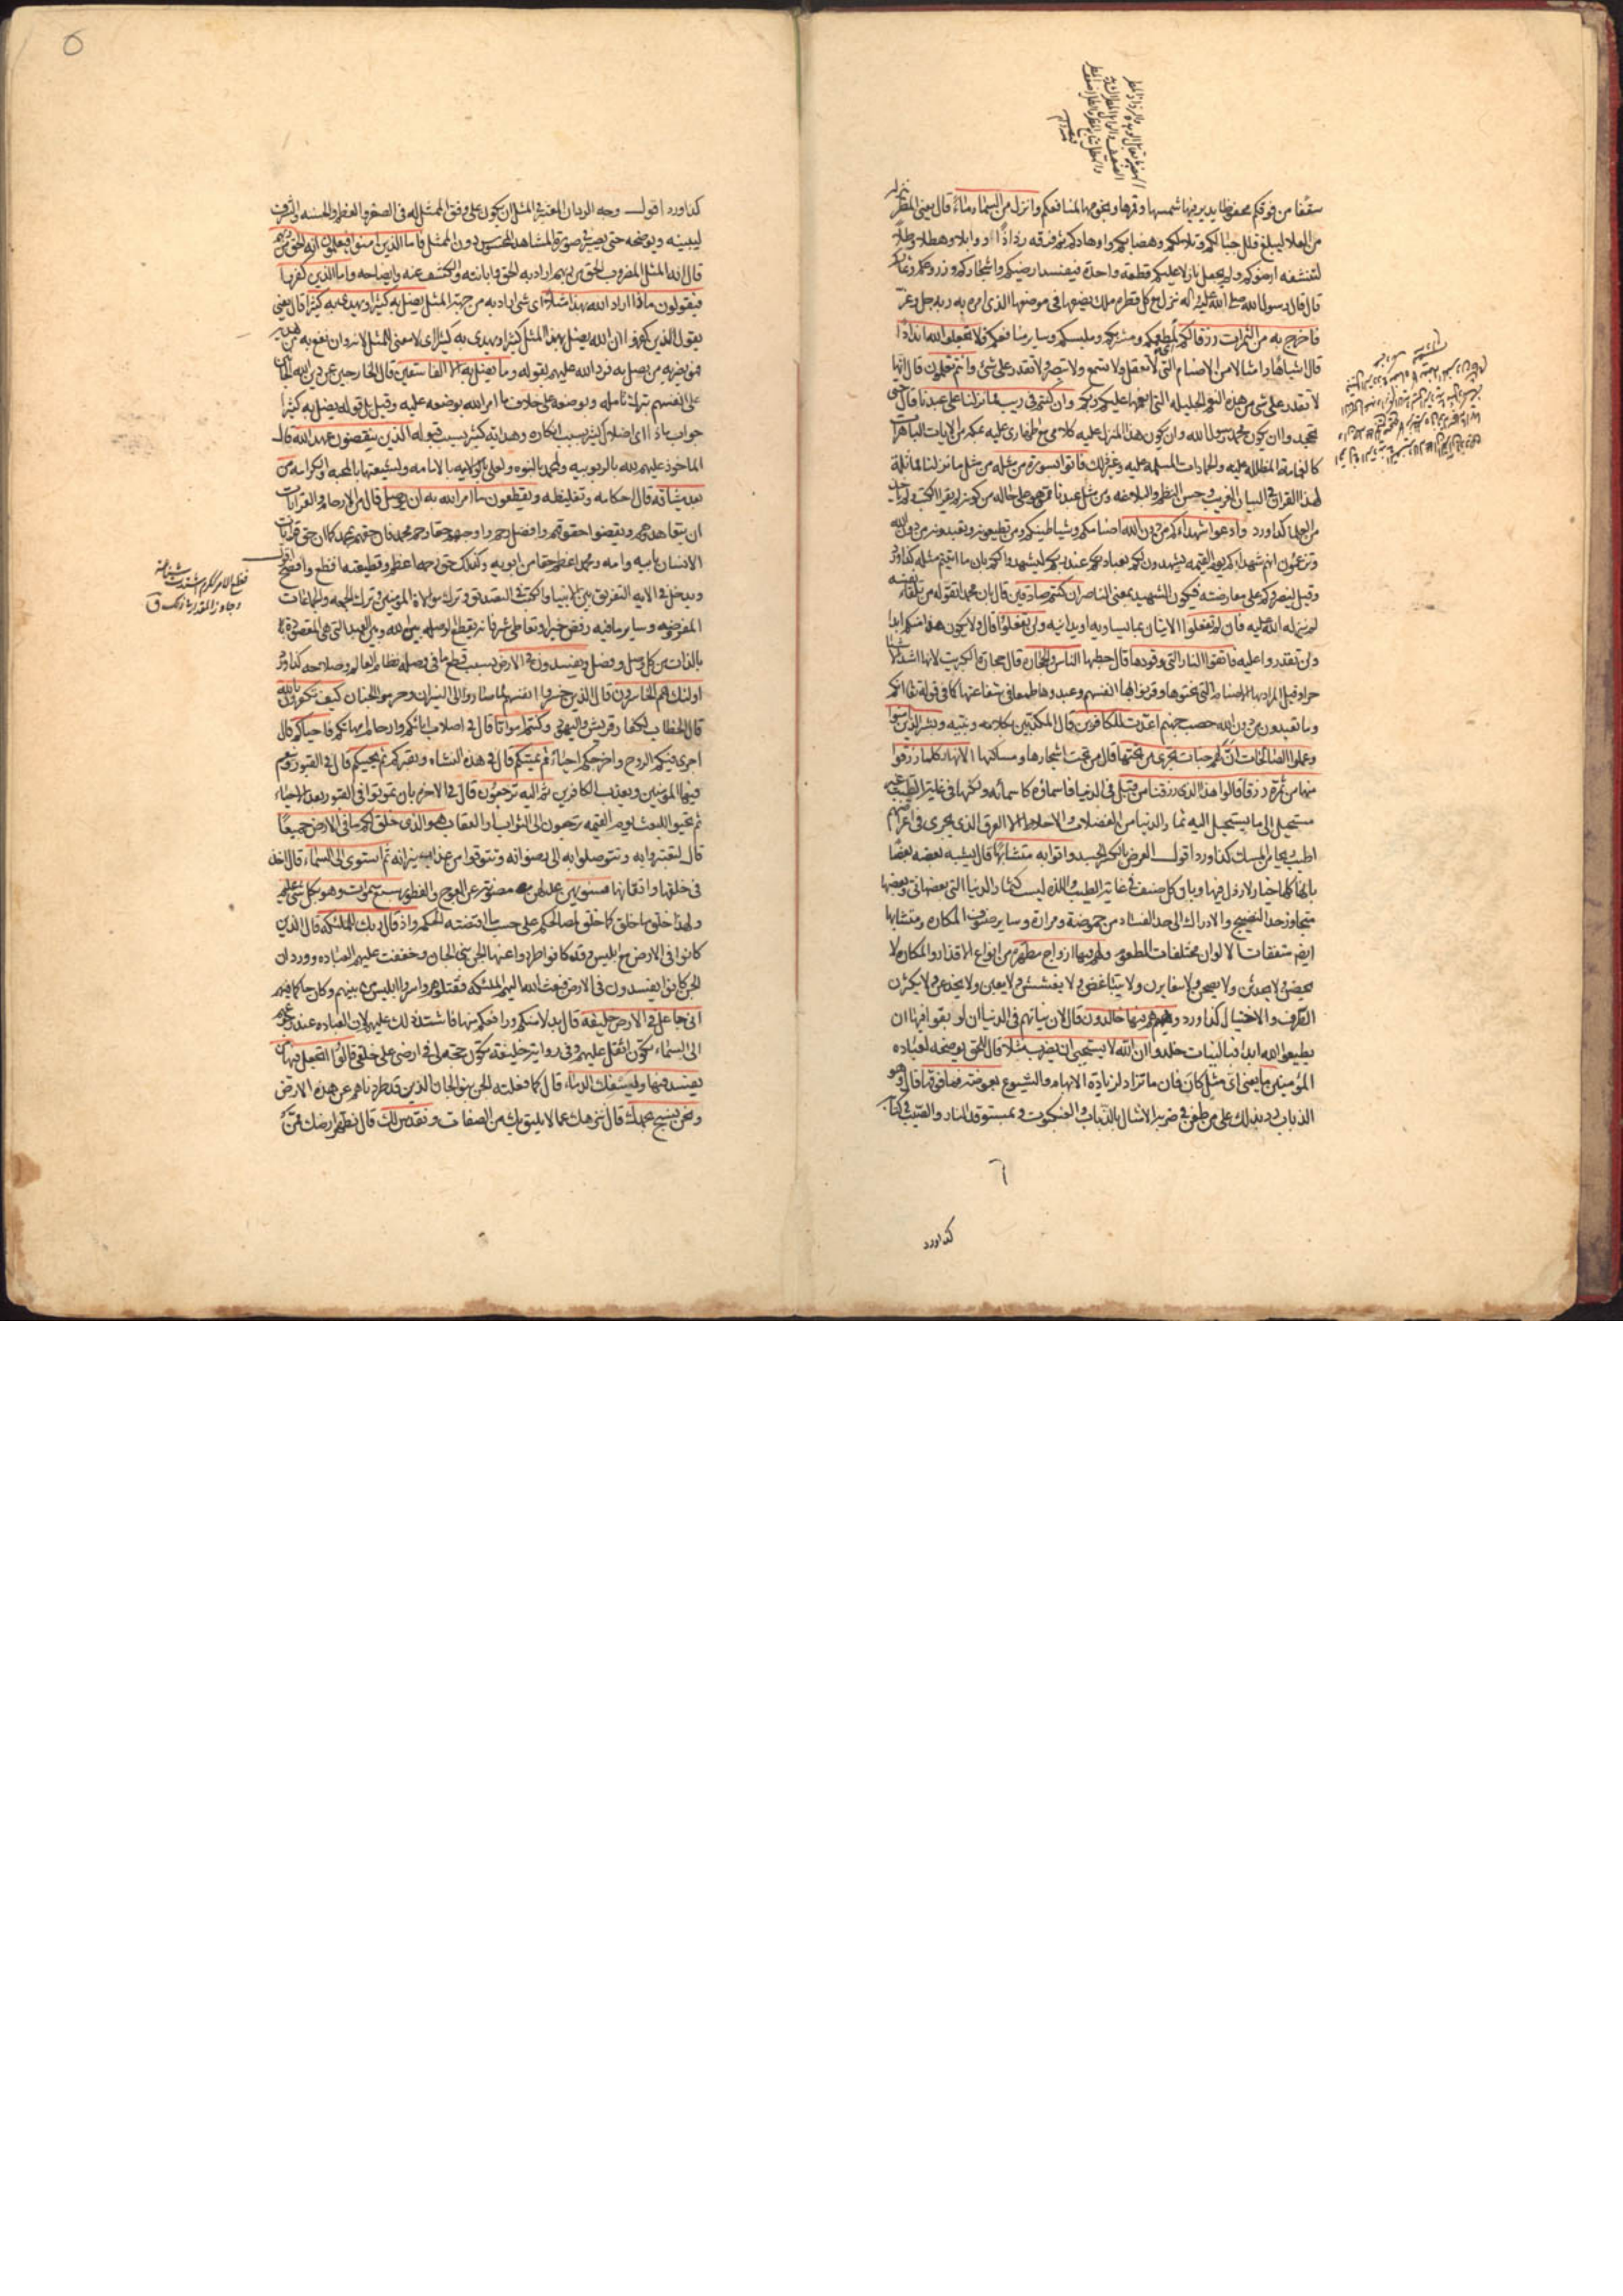 سقفا من فوقكم محفوظا يدير فيها شمسها وقمرها ونجومها لمنافعكم وانزل من السماء ماء قال يعنى المطر ينزله
من العلا ليبلغ قلل جبالكم وتلالكم وهضابكم واوهادكم ثم فرقه رذاذا ووابلا وهطلا وطلا
لتنشفه ارضوكم ولم يجعل نازلا عليكم قطعة واحدة فيفسد ارضيكم واشجاركم وزروعكم وثماركم
قال قال رسول الله صلى الله عليه واله ينزل مع كل قطرة ملك يضعها فى موضعها الذى امره به ربه جل وعز
فاخرج به من الثمرات رزقا لكم لمطعمكم ومشربكم وملبسكم وساير منافعكم فلا تجعلوا لله اندادا
قال اشباها وامثالا من الاصنام التى لا تعقل ولا تسمع ولا تبصر ولا تقدر على شئ وانتم تعلمون قال انها
لا تقدر على شئ من هذه النعم الجليله التى انعمها عليكم ربكم وان كنتم فى ريب مما نزلنا على عبدنا قال حتى
تجحدوا ان يكون محمد رسول الله وان يكون هذا المنزل عليه كلامى مع اظهارى عليه بمكة من الايات الباهرات
كالغمامة المظلله عليه والجمادات المسلمه عليه وغير ذلك فاتوا بسورة من مثله من مثل ما نزلنا مماثلة
لهذا القران فى البيان الغريب وحسن النظم والبلاغه ومن مثل عبدنا ممن هو على حاله من كونه لم يقرا الكتب ولم ياخذ
من العلما كذا ورد وادعوا شهداءكم من دون الله اصنامكم وشياطينكم ومن تطيعونه وتعبدونه من دون الله
وتزعمون انهم شهداءكم يوم القيمه يشهدون لكم بعبادتكم عند ربكم ليشهدوا لكم بان ما اتيتم مثله كذا ورد
وقيل لينصروكم على معارضته فيكون الشهيد بمعنى الناصر ان كنتم صادقين قال بان محمدا تقوله من تلقاء نفسه
لم ينزله الله عليه فان لم تفعلوا الاتيان بما يساويه او يدانيه ولن تفعلوا قال ولا يكون هذا منكم ابدا
ولن تقدروا عليه فاتقوا النار التى وقودها قال حطبها الناس والحجارة قال حجارة الكبريت لانها اشد الاشياء
حرا وقيل المراد بها الاصنام التى نحتوها وقرنوا بها انفسهم وعبدوها طمعا فى شفاعتها كما فى قوله تعالى انكم
وما تعبدون من دون الله حصب جهنم اعدت للكافرين قال المكذبين بكلامه ونبيه وبشر الذين امنوا
وعملوا الصالحات ان لهم جنات تجرى من تحتها قال من تحت اشجارها ومساكنها الانهار كلما رزقوا
منها من ثمرة رزقا قالوا هذا الذى رزقنا من قبل فى الدنيا فاسماؤه كاسمائه ولكنها فى غاية الطيب غير
مستحيل الى ما يستحيل اليه ثمار الدنيا من الفضلات والاخلاط الا العرق الذى يجرى فى اعراضهم
اطيب من المسك كذا ورد اقول العرض بالكسر الجسد واتوا به متشابها قال يشبه بعضه بعضا
بانها كلها خيار لا رذل فيها وبان كل صنف فى غاية الطيب واللذه ليست كثمار الدنيا التى بعضها نى وبعضها
متجاوز حد النضيج والادراك الى حد الفساد من حموضة ومرارة وساير صنوف المكاره ومتشابها
ايضا متفقات الالوان مختلفات الطعوم ولهم فيها ازواج مطهرة من انواع الاقذار والمكاره لا
يحيضن ولا يحدثن ولا يصخبن ولا يتغايرن ولا يتباغضن ولا يغششن ولا يعبن ولا يخدعن ولا يكثرن
التكلف والاختيال كذا ورد وهم فيها خالدون قال لان نياتهم فى الدنيا ان لو بقوا فيها ان
يطيعوا الله ابدا فبالنيات خلدوا ان الله لا يستحيى ان يضرب مثلا قال للحق يوضحه لعباده
المؤمنين ما يعنى اى مثل كان فان ما تزاد لزيادة الابهام والشيوع بعوضة فما فوقها قال وهو
الذباب رد بذلك على من طعن فى ضربه الامثال بالذباب والعنكبوت وبمستوقد النار والصيب فى كتابه
٦
كذا ورد
كذا ورد اقول وجه الرد بان المعتبر فى المثل ان يكون على وفق الممثل له فى الصغر والعظم والخسه والشرف
ليبينه ويوضحه حتى يصير فى صورة المشاهد المحسوس دون الممثل فاما الذين امنوا فيعلمون انه الحق من ربهم
قال انه المثل المضروب الحق من ربهم اراد به الحق وابانته والكشف عنه وايضاحه واما الذين كفروا
فيقولون ماذا اراد الله بهذا مثلا اى شئ اراد به من جهة المثل يضل به كثيرا ويهدى به كثيرا قال يعنى
يقول الذين كفروا ان الله يضل بهذا المثل كثيرا ويهدى به كثيرا اى لا معنى للمثل لانه وان نفع به من يهديه
فهو يضر به من يضل به فرد الله عليهم بقوله وما يضل به الا الفاسقين قال الخارجين عن دين الله الجانين
على انفسهم بترك تامله وبوضعه على خلاف ما امر الله بوضعه عليه وقيل بل قوله يضل به كثيرا
جواب ماذا اى اضلال كثير بسبب انكاره وهداية كثير بسبب قبوله الذين ينقضون عهد الله قال
الماخوذ عليهم لله بالربوبيه ولمحمد بالنبوه ولعلى بالولايه بالامامه ولشيعتهما بالمحبه والكرامه من
بعد ميثاقه قال احكامه وتغليظه ويقطعون ما امر الله به ان يوصل قال من الارحام والقرابات
ان يتعاهدوهم ويقضوا حقوقهم وافضل رحم واوجبهم حقا رحم محمد فان حقهم بمحمد كما ان حق قرابات
الانسان بابيه وامه ومحمد اعظم حقا من ابويه وكذلك حق رحمه اعظم وقطيعته افظع وافضح اقول
ويدخل فى الايه التفريق بين الانبيا والكتب فى التصديق وترك موالاة المؤمنين وترك الجمعه والجماعات
المفروضه وساير ما فيه رفض خير او تعاطى شر فانه يقطع الوصله بين الله وبين العبد التى هى المقصودة
بالذات من كل وصل وفصل ويفسدون فى الارض بسبب قطع ما فى وصله نظام العالم وصلاحه كذا ورد
اولئك هم الخاسرون قال الذين خسروا انفسهم لما صاروا الى النيران وحرموا الجنان كيف تكفرون بالله
قال الخطاب لكفار قريش واليهود وكنتم امواتا قال فى اصلاب ابائكم وارحام امهاتكم فاحياكم قال
اجرى فيكم الروح واخرجكم احياء ثم يميتكم قال فى هذه النشاه ويقبركم ثم يحييكم قال فى القبور وينعم
فيها المؤمنين ويعذب الكافرين ثم اليه ترجعون قال فى الاخرة بان تموتوا فى القبور بعد الاحياء
ثم تحيوا للبعث يوم القيمه ترجعون الى الثواب او العقاب هو الذى خلق لكم ما فى الارض جميعا
قال لتعتبروا به وتتوصلوا به الى رضوانه وتتوقوا من عذاب نيرانه ثم استوى الى السماء قال اخذ
فى خلقها واتقانها فسويهن عدلهن مصونة عن العوج والفطور سبع سموات وهو بكل شئ عليم
ولهذا خلق ما خلق كما خلق لمصالحكم على حسب ما اقتضته الحكمه واذ قال ربك للملئكة قال الذين
كانوا فى الارض مع ابليس وقد كانوا طردوا عنها الجن بنى الجان وخففت عليهم العباده وورد ان
الجن كانوا يفسدون فى الارض فبعث الله اليهم الملئكه فقتلوهم واسروا ابليس من بينهم وكان حاكما فيهم
انى جاعل فى الارض خليفة قال بدلا منكم ورافعكم منها فاشتد ذلك عليهم لان العباده عند رجوعهم
الى السماء تكون اثقل عليهم وفى رواية خليفة تكون حجة لى فى ارضى على خلقى قالوا اتجعل فيها من
يفسد فيها ويسفك الدماء قال كما فعلته الجن بنو الجان الذين قد طردناهم عن هذه الارض
ونحن نسبح بحمدك قال ننزهك عما لا يليق بك من الصفات ونقدس لك قال نطهر ارضك ممن
فظع الامر ككرم اشتدت شناعته
وجاوز المقدار فى ذلك ق